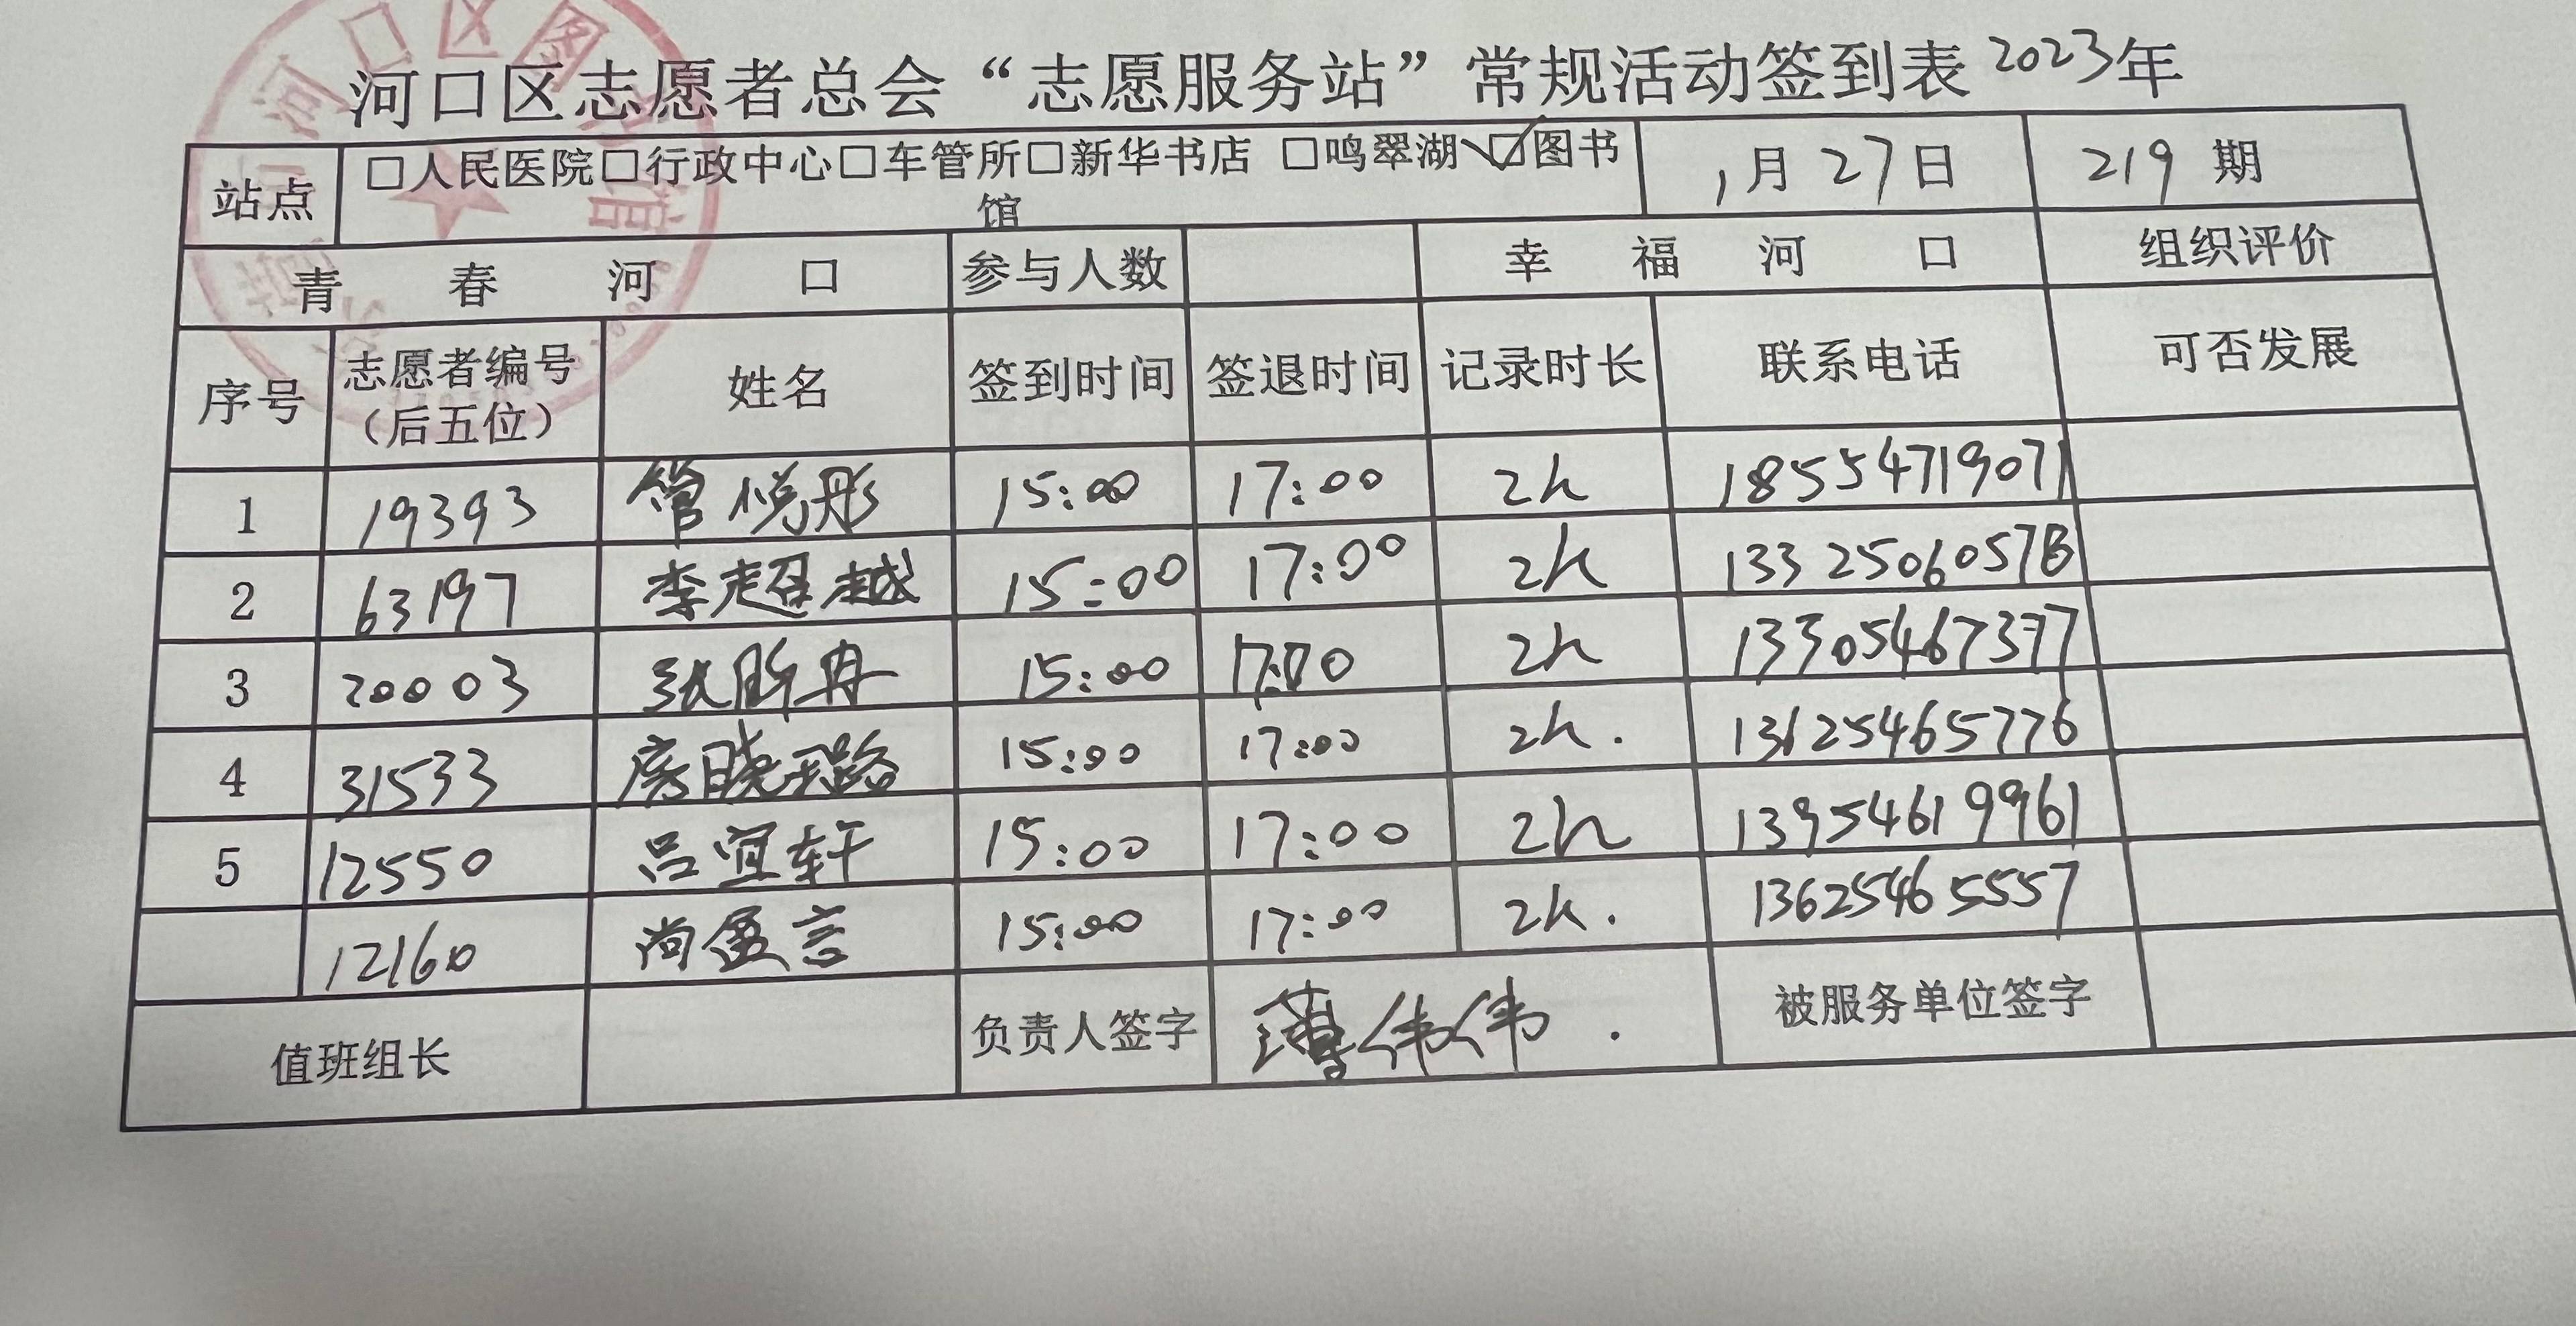 河口区志愿者总会“志愿服务站”常规活动签到表 2023年
站点 □人民医院□行政中心□车管所□新华书店 □鸣翠湖 ☑图书馆 1月27日 219 期
青春河口 参与人数 幸福河口 组织评价
序号 志愿者编号（后五位） 姓名 签到时间 签退时间 记录时长 联系电话 可否发展
1 19393 管悦彤 15:00 17:00 2h 18554719071
2 63197 李超越 15:00 17:00 2h
3 20003 张 丹 15:00 2h 13305467377
4 31533 房晓璐 15:00 17:00 2h. 13125465776
5 12550 吕宜轩 15:00 17:00 2h 13954619961
12160 尚盈言 15:00 17:00 2h. 13625465557
值班组长 负责人签字 薄伟伟. 被服务单位签字